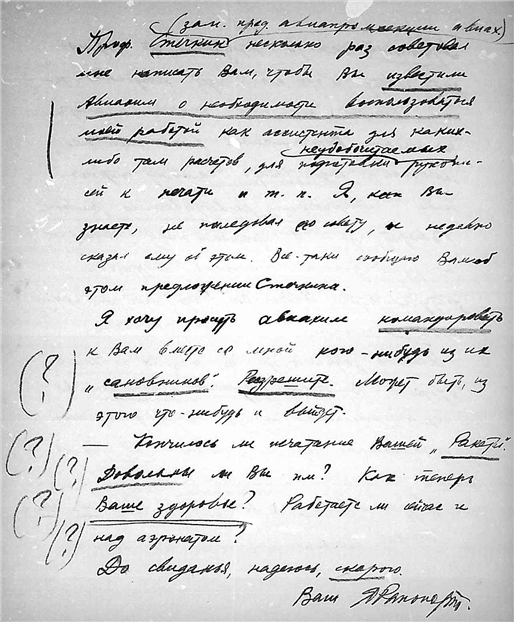 (зам. пред. авиапромсекции авиах.)
Проф. Стечкин несколько раз советовал
мне написать Вам, чтобы Вы известили
Авиахим о необходимости воспользоваться
моей работой как ассистента для каких-
либо там расчетов, для
неудобочитаемых
подготовки рукопи-
сей к печати и т. п. Я, как Вы
знаете, не последовал его совету, и недавно
сказал ему об этом. Все-таки сообщаю Вам об
этом предложении Стечкина.
Я хочу просить авиахим командировать
к Вам вместе со мной кого-нибудь из их
„сановников". Разрешите. Может быть, из
этого что-нибудь и выйдет.
(?)
— Кончилось ли печатание Вашей „Ракеты".
(?) (?)
Довольны ли Вы им? Как теперь
Ваше здоровье? Работаете ли сейчас и
(?) (?)
над аэронатом?
До свиданья, надеюсь, скорого.
Ваш Я Рапопорт.